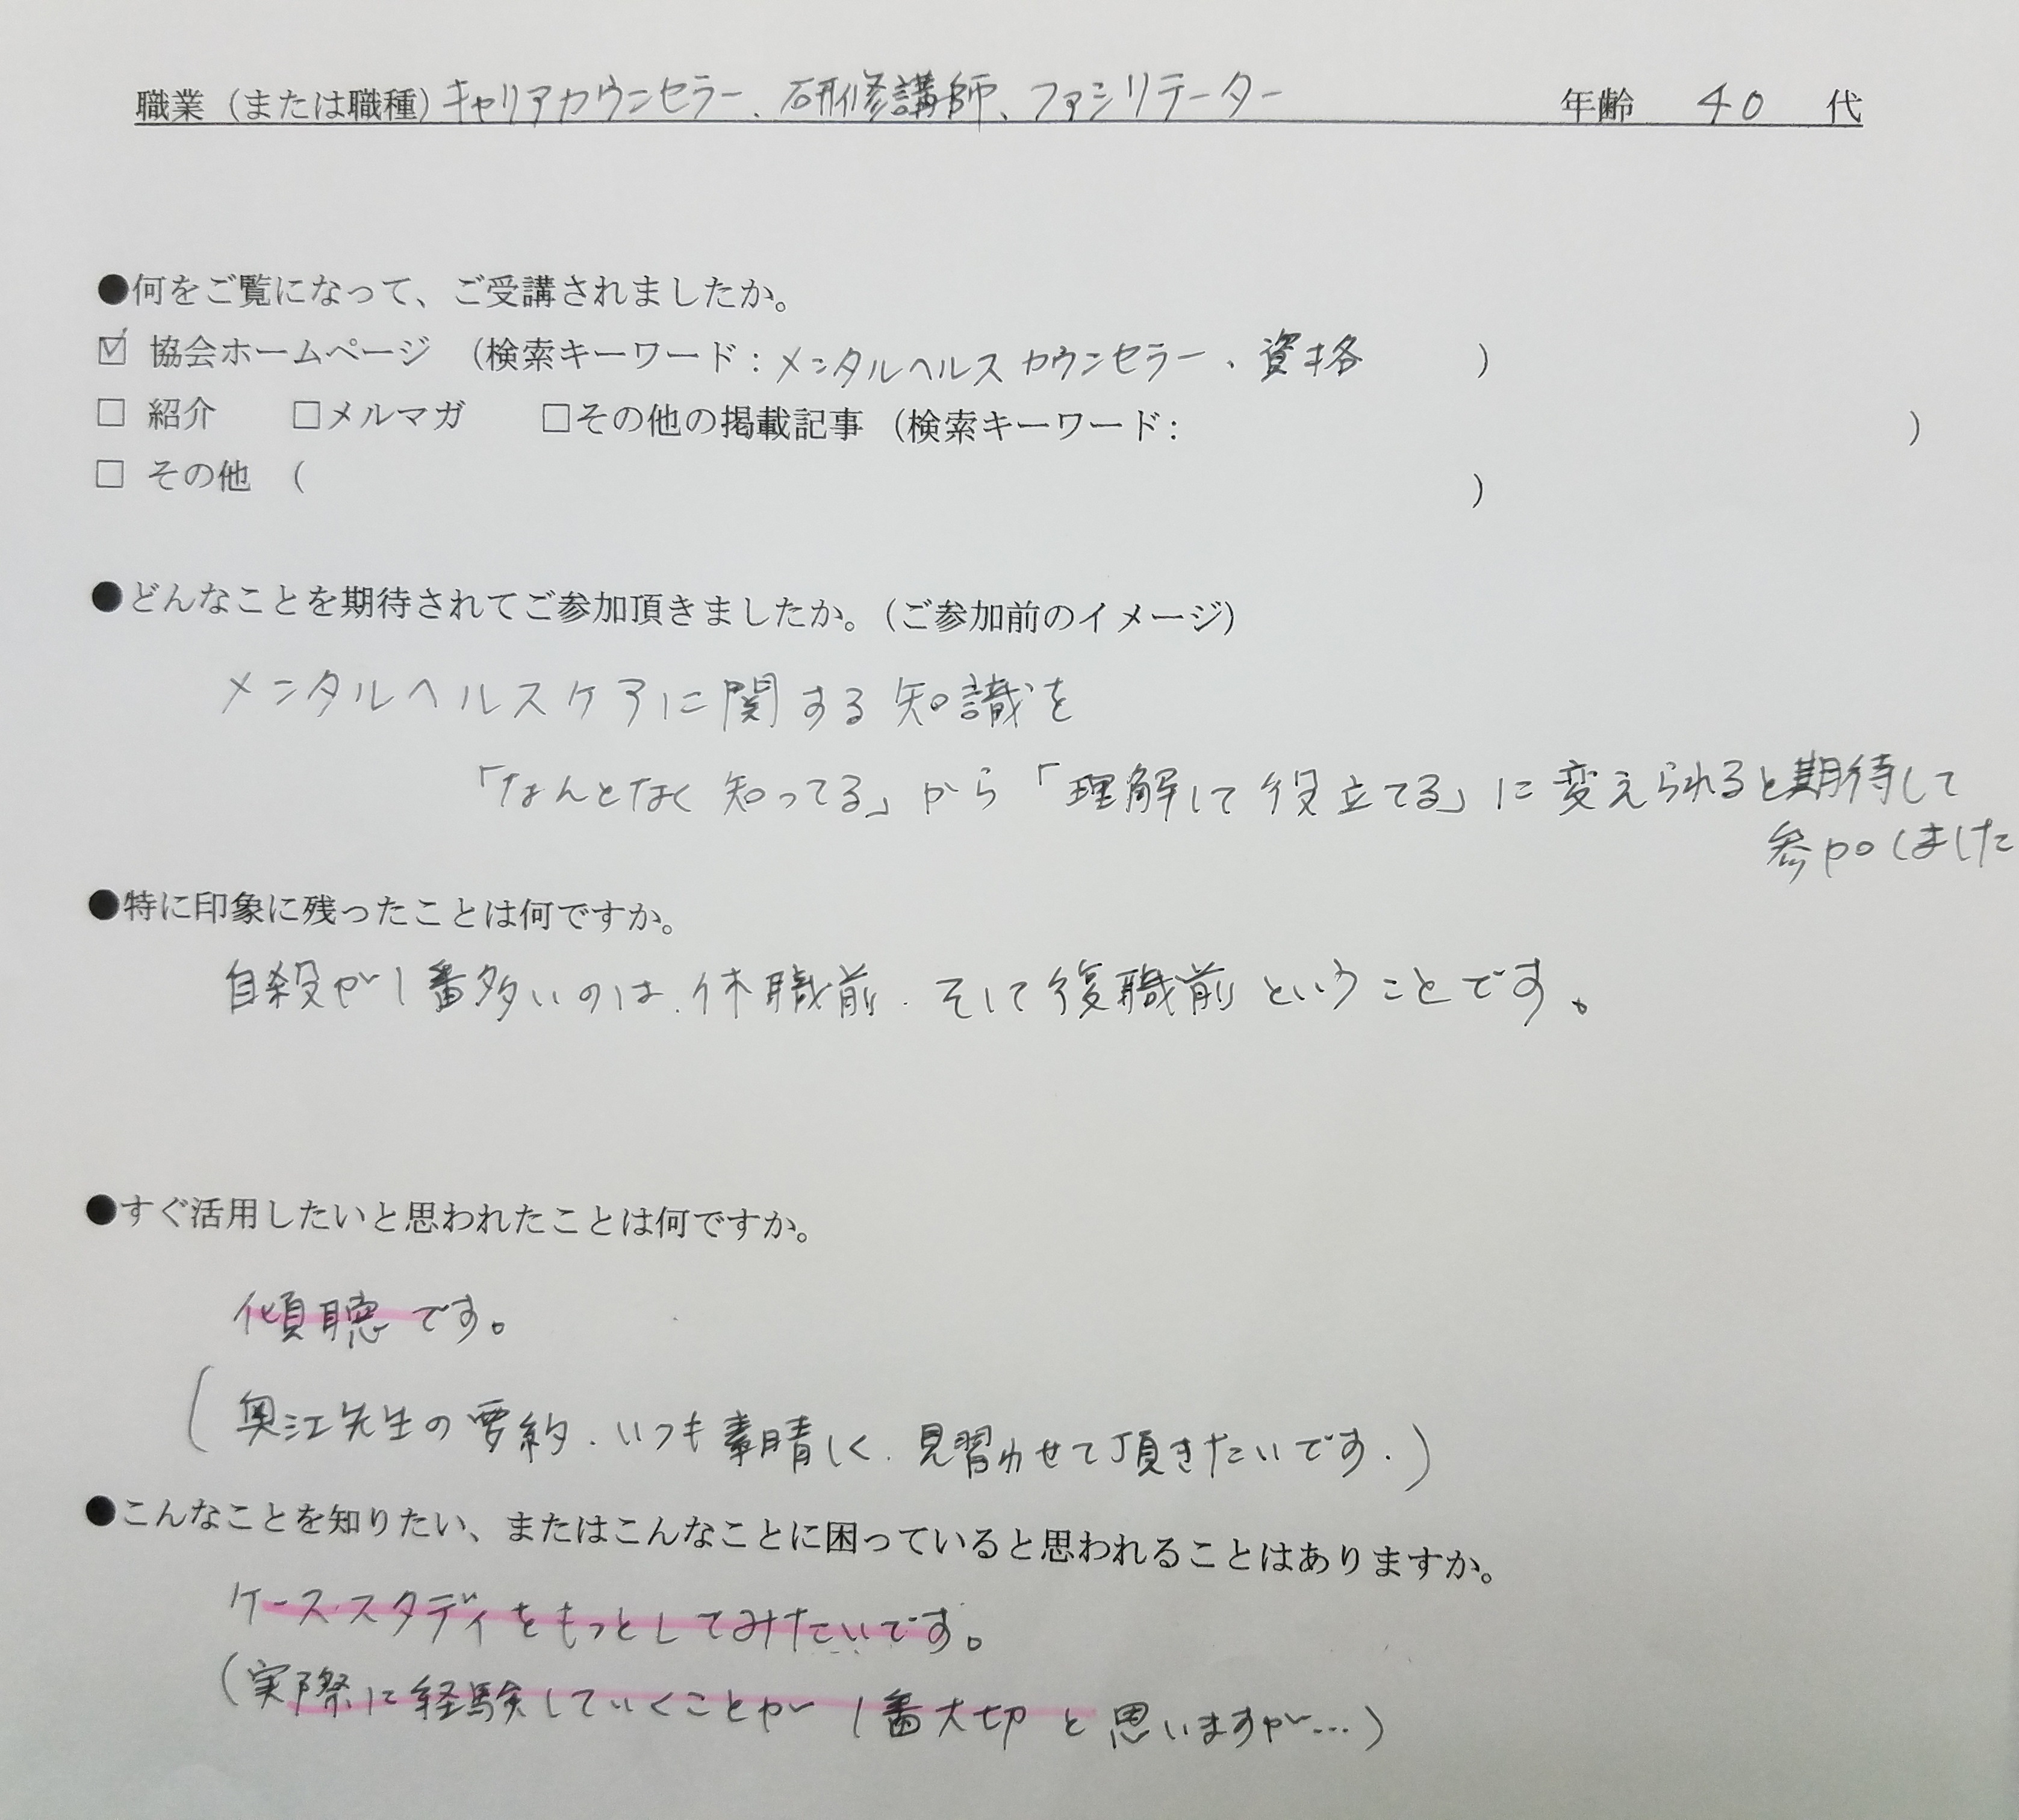 職業（または職種）キャリアカウンセラー、研修講師、ファシリテーター 年齢 40 代
●何をご覧になって、ご受講されましたか。
☑ 協会ホームページ （検索キーワード：メンタルヘルスカウンセラー、資格 ）
□ 紹介 □メルマガ □その他の掲載記事（検索キーワード： ）
□ その他 （ ）
●どんなことを期待されてご参加頂きましたか。（ご参加前のイメージ）
メンタルヘルスケアに関する知識を
「なんとなく知ってる」から「理解して役立てる」に変えられると期待して
参加しました
●特に印象に残ったことは何ですか。
自殺が1番多いのは、休職前、そして復職前ということです。
●すぐ活用したいと思われたことは何ですか。
傾聴です。
（奥江先生の要約、いつも素晴しく、見習わせて頂きたいです。）
●こんなことを知りたい、またはこんなことに困っていると思われることはありますか。
ケーススタディをもっとしてみたいです。
（実際に経験していくことが1番大切と思いますが…）